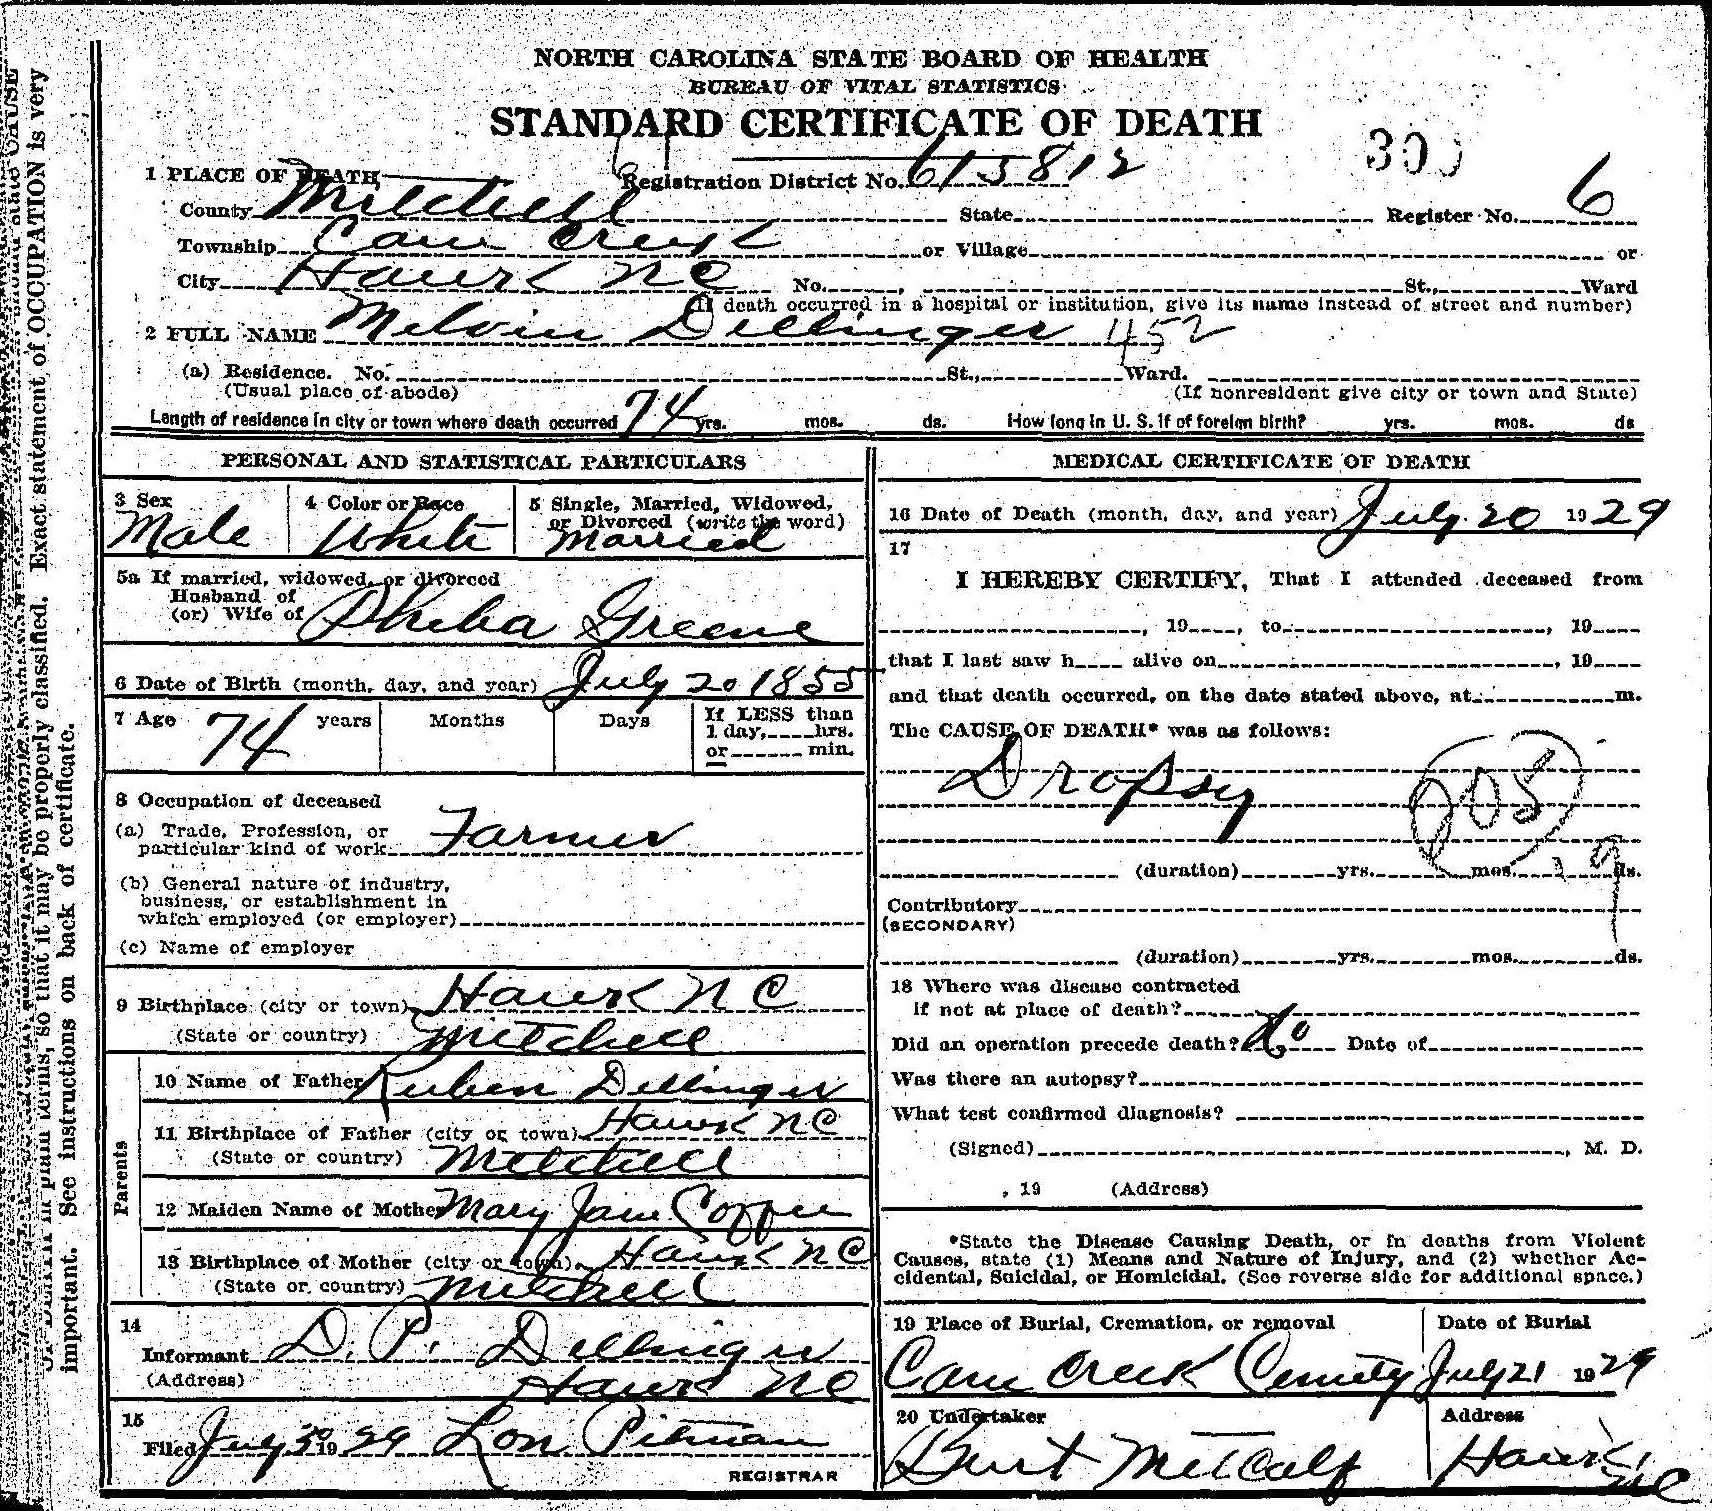 NORTH CAROLINA STATE BOARD OF HEALTH
BUREAU OF VITAL STATISTICS
STANDARD CERTIFICATE OF DEATH
1 PLACE OF DEATH Registration District No. 615812
County Mitchell State Register No. 6
Township Cane Creek or Village or
City Hawk NC No. , St., Ward
(If death occurred in a hospital or institution, give its name instead of street and number)
2 FULL NAME Melvin Dellinger 452
(a) Residence. No. St., Ward.
(Usual place of abode) (If nonresident give city or town and State)
Length of residence in city or town where death occurred 74 yrs. mos. ds. How long in U. S. if of foreign birth? yrs. mos. ds
PERSONAL AND STATISTICAL PARTICULARS
3 Sex 4 Color or Race 5 Single, Married, Widowed,
or Divorced (write the word)
Male White Married
5a If married, widowed, or divorced
Husband of
(or) Wife of Pheba Greene
6 Date of Birth (month, day, and year) July 20 1855
7 Age 74 years Months Days If LESS than
1 day, hrs.
or min.
8 Occupation of deceased
(a) Trade, Profession, or
particular kind of work Farmer
(b) General nature of industry,
business, or establishment in
which employed (or employer)
(c) Name of employer
9 Birthplace (city or town) Hawk N C
(State or country) Mitchell
Parents
10 Name of Father Reuben Dellinger
11 Birthplace of Father (city or town) Hawk NC
(State or country) Mitchell
12 Maiden Name of Mother Mary Jane
13 Birthplace of Mother (city or town) Hawk NC
(State or country) Mitchell
14
Informant D. P. Dellinger
(Address) Hawk NC
15
Filed July 30 1929 Lon Pitman
REGISTRAR
MEDICAL CERTIFICATE OF DEATH
16 Date of Death (month, day, and year) July 20 1929
17
I HEREBY CERTIFY, That I attended deceased from
, 19 , to , 19
that I last saw h alive on , 19
and that death occurred, on the date stated above, at m.
The CAUSE OF DEATH* was as follows:
Dropsy
(duration) yrs. mos. ds.
Contributory
(SECONDARY)
(duration) yrs. mos. ds.
18 Where was disease contracted
if not at place of death?
Did an operation precede death? No Date of
Was there an autopsy?
What test confirmed diagnosis?
(Signed) , M. D.
, 19 (Address)
*State the Disease Causing Death, or in deaths from Violent
Causes, state (1) Means and Nature of Injury, and (2) whether Ac-
cidental, Suicidal, or Homicidal. (See reverse side for additional space.)
19 Place of Burial, Cremation, or removal Date of Burial
Cane Creek Cemetery July 21 1929
20 Undertaker Address
Burt Metcalf Hawk NC
OCCUPATION is very
important. See instructions on back of certificate.
Exact statement of
so that it may be properly classified.